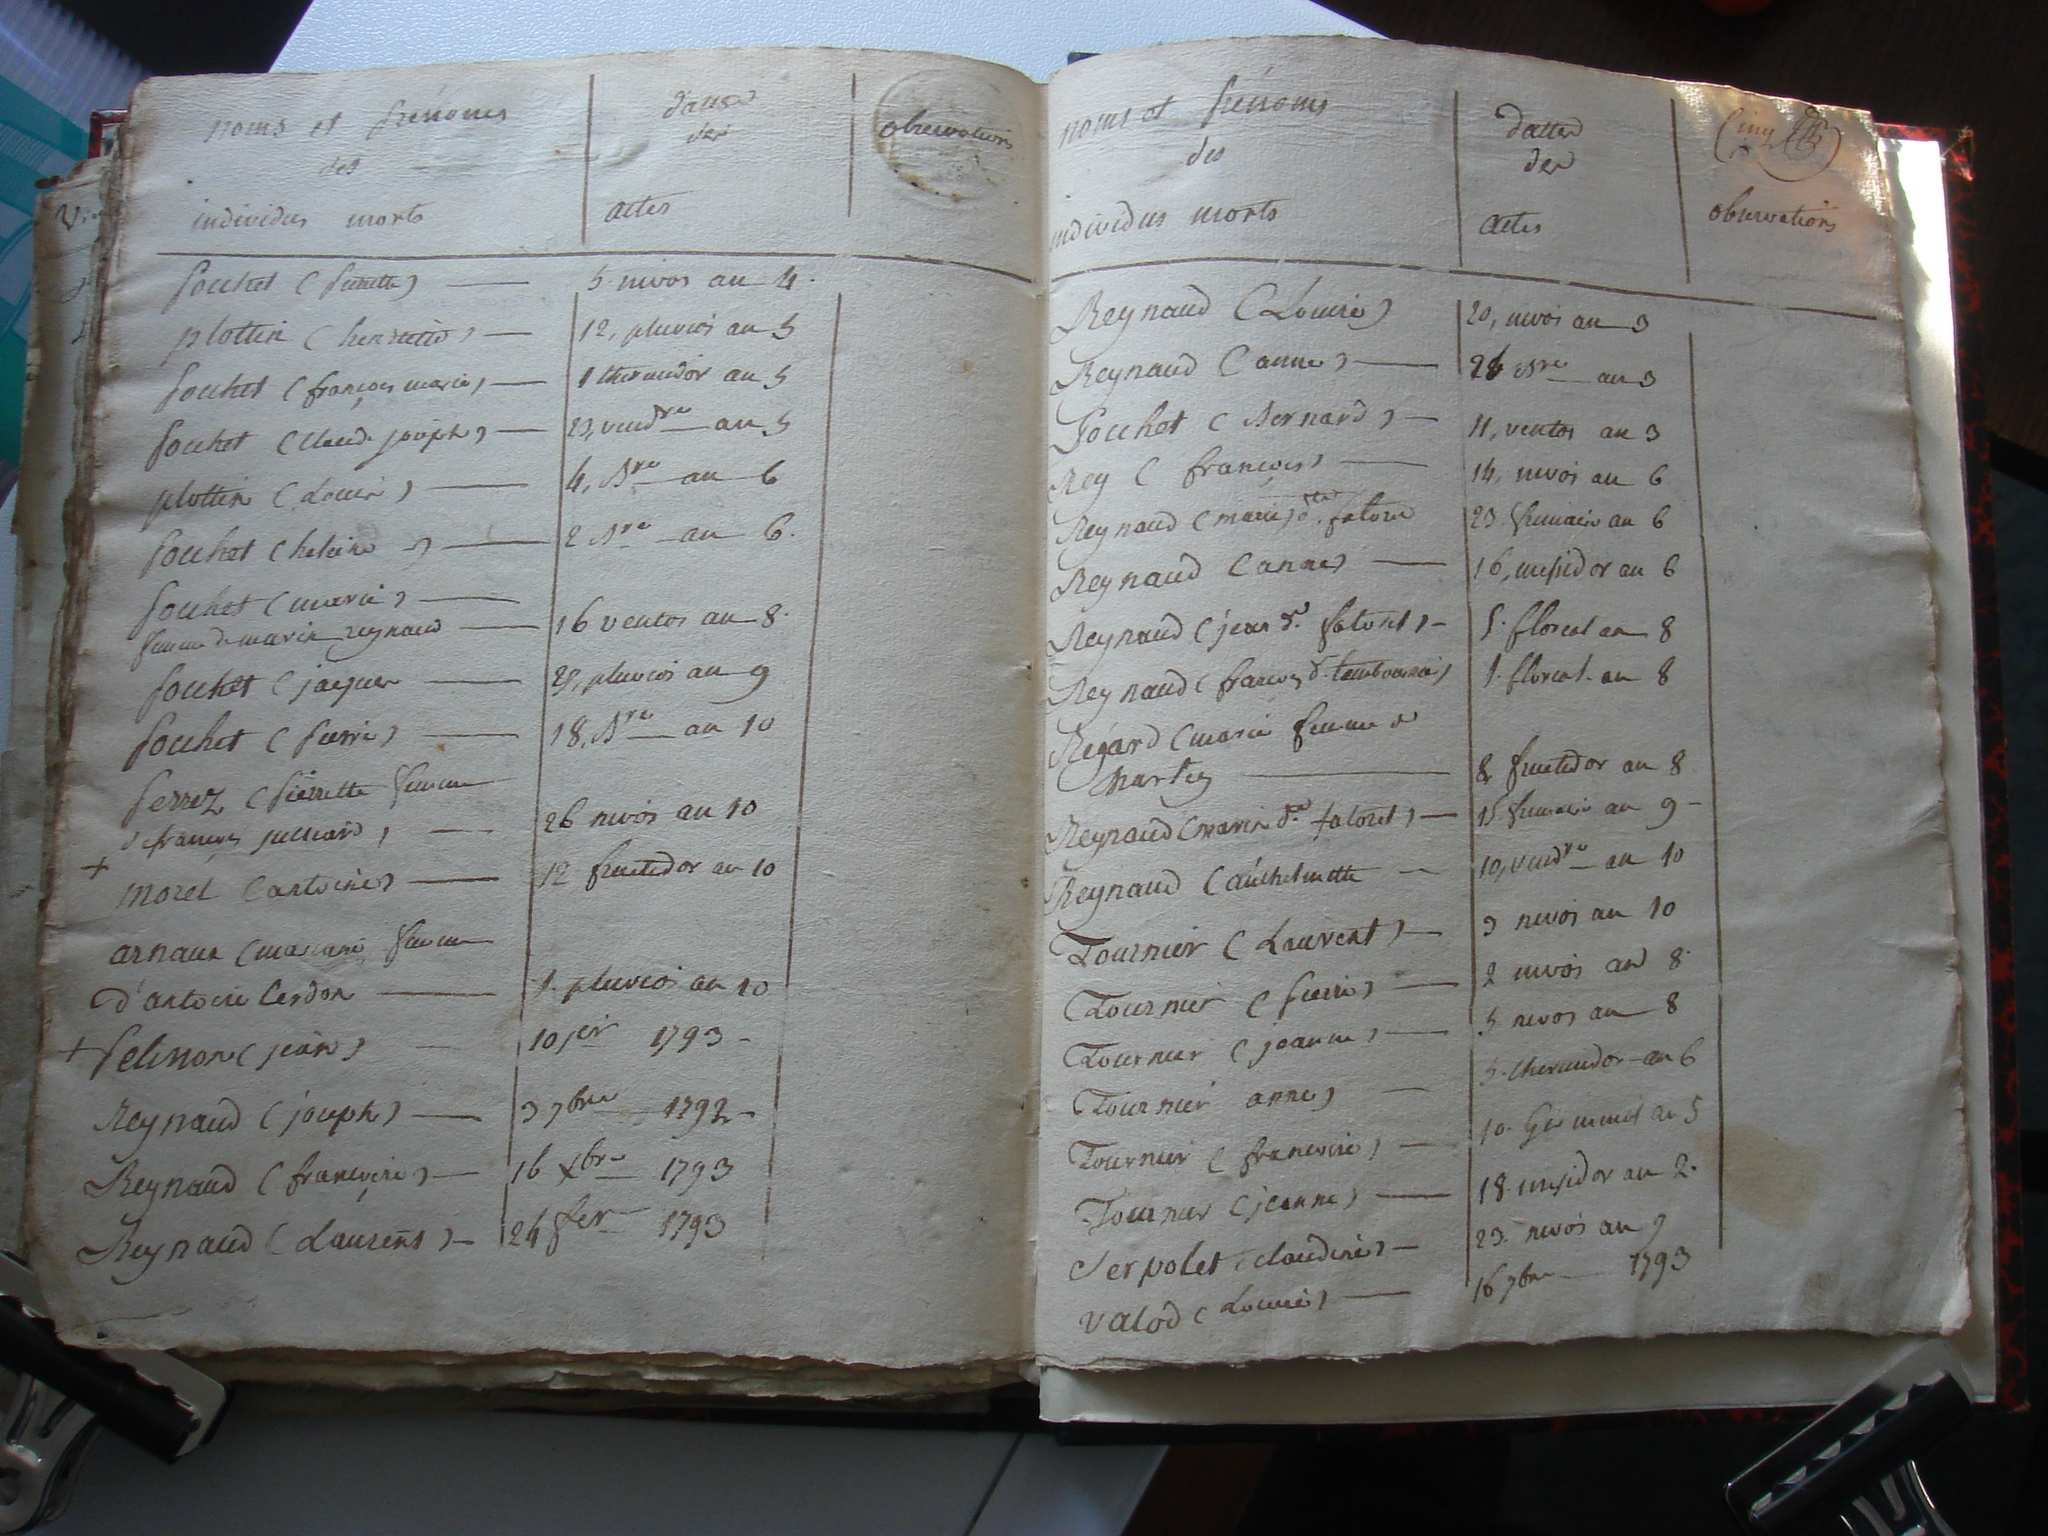 noms et prénoms
des
individus morts
dattes
des
actes
observations
pochet (pierrette) 5 nivos an 4.
plottin (henriette) 12, pluviôs an 5
pochet (françois marie) 1 thermidor an 5
pochet (claude joseph) 23, vendre an 5
plottin (Louis) 4, Bre an 6
pochet (heleine) 2 Bre an 6.
pochet (marie)
femme de marin reynaud 16 ventos an 8.
pochet (jaques 25, pluviôs an 9
pochet (pierre) 18, Bre an 10
perrez (pierrette femme
de françois julliard) 26 nivôs an 10
+ morel (antoine) 12 fructidor an 10
arnaux (mariane, femme
d'antoine Cerdon 1. pluviôs an 10
+ pelisson (jean) 10 jer 1793
Reynaud (joseph) 3 7bre 1792
Reynaud (françoise) 16 Xbre 1793
Reynaud (Laurent) 24 fer 1793
noms et prénoms
des
individus morts
dattes
des
actes
Cinq
observations
Reynaud (Louise) 20, nivôs an 3
Reynaud (anne) 26 Bre an 3
pochet (Bernard) 11, ventos an 3
Rey (françois) 14, nivôs an 6
Reynaud (marie dte falourd 23 frimaire an 6
Reynaud (anne) 16, messidor an 6
Reynaud (jean dt falont) 5. floreal an 8
Reynaud (françois dt tambournais) 1. floreal an 8
Régard (marie femme de
Charley 8 fructidor an 8
Reynaud (marie dte faloret) 15 frimaire an 9
Reynaud (anthelmette 10, vendre an 10
Tournier (Laurent) 3 nivôs an 10
Tournier (pierre) 2 nivôs an 8.
Tournier (jeanne) 5 nivos an 8
Tournier anne) 5. thermidor an 6
Tournier (françoise) 10. Germinal an 5
Tournier (jeanne) 18. messidor an 2.
Serpolet (claudine) 23. nivôs an 9
Valod (Louise) 16 7bre 1793